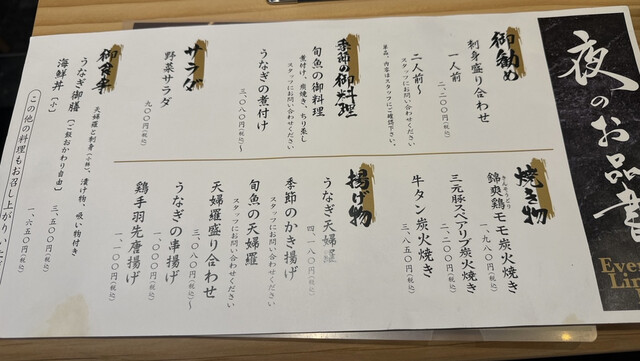 夜のお品書
Even
Lim
御勧め
刺身盛り合わせ
一人前
二、二〇〇円(税込)
二人前〜
スタッフにお問い合わせください
単品、内容はスタッフにご確認下さい。
季節の御料理
旬魚の御料理
煮付け、炭焼き、ちり蒸し
スタッフにお問い合わせください
うなぎの煮付け
三、〇八〇円(税込)〜
サラダ
野菜サラダ
九〇〇円(税込)
御食事
うなぎ御膳
天婦羅と刺身(小鉢一、漬け物、吸い物付き
(ご飯おかわり自由)
三、五〇〇円(税込)
海鮮丼(小)
一、六五〇円(税込)
この他の料理もお召し上がりいた
焼き物
きんそうどり
錦爽鶏モモ炭火焼き
一、九八〇円(税込)
三元豚スペアリブ炭火焼き
二、二〇〇円(税込)
牛タン炭火焼き
三、八五〇円(税込)
揚げ物
うなぎ天婦羅
四、一八〇円(税込)
季節のかき揚げ
スタッフにお問い合わせください
旬魚の天婦羅
スタッフにお問い合わせください
天婦羅盛り合わせ
三、〇八〇円(税込)〜
うなぎの串揚げ
一、〇〇〇円(税込)
鶏手羽先唐揚げ
一、一〇〇円(税込)